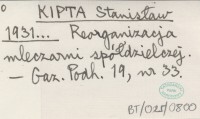 KIPTA Stanisław
1931... Reorganizacja
mleczarni spółdzielczej.
— Gaz. Podh. 19, nr 33.
BT/025/0800